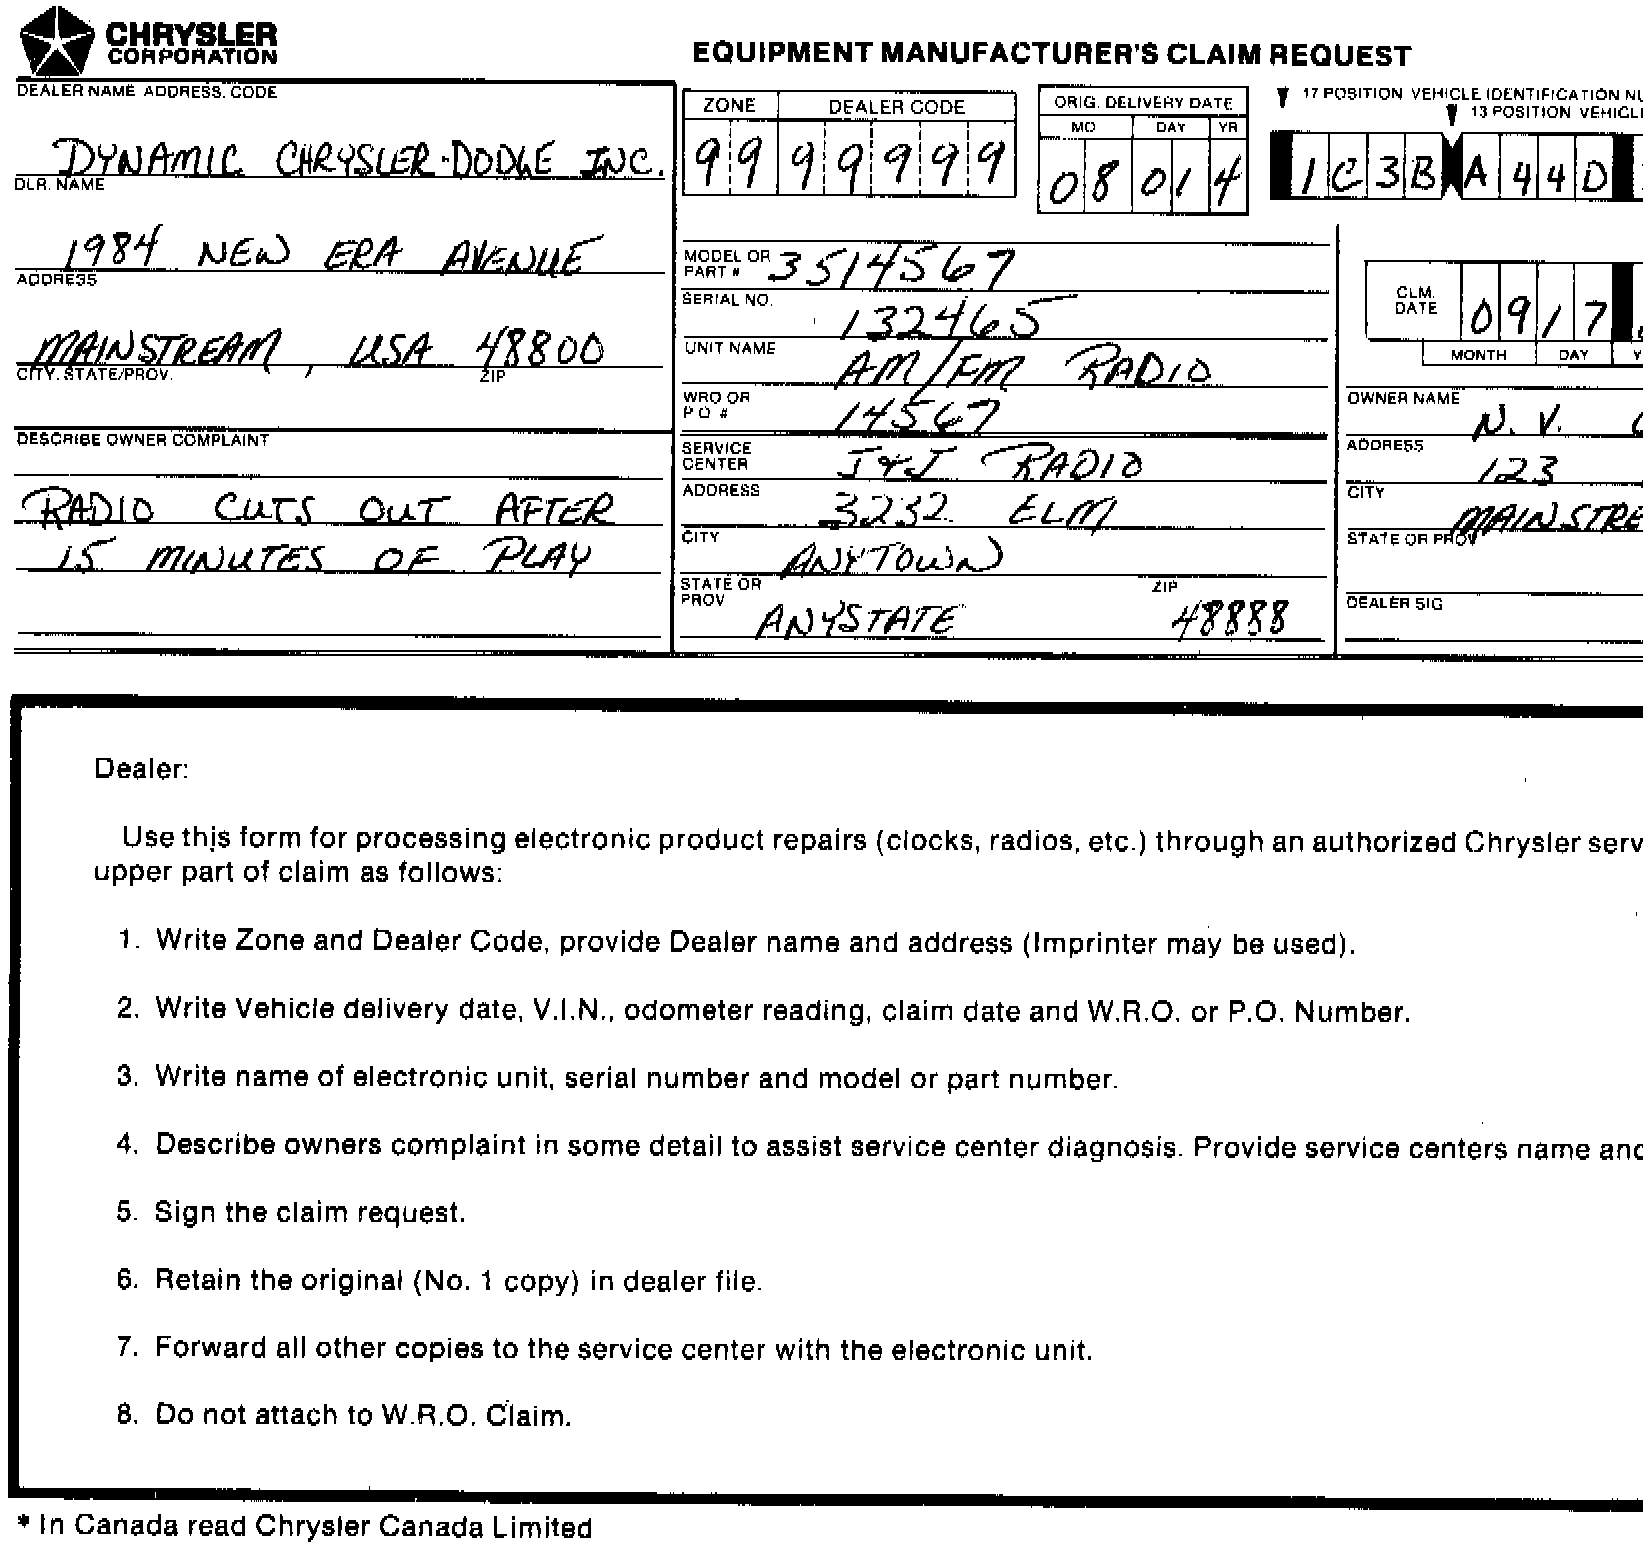 CHRYSLER
CORPORATION
EQUIPMENT MANUFACTURER'S CLAIM REQUEST
DEALER NAME ADDRESS, CODE
DYNAMIC CHRYSLER-DODGE INC.
DLR. NAME
1984 NEW ERA AVENUE
ADDRESS
MAINSTREAM, USA 48800
CITY, STATE/PROV. ZIP
DESCRIBE OWNER COMPLAINT
RADIO CUTS OUT AFTER
15 MINUTES OF PLAY
ZONE DEALER CODE
99 99999
ORIG. DELIVERY DATE
MO DAY YR
08 01 4
17 POSITION VEHICLE IDENTIFICATION
13 POSITION
1C3B A44D
MODEL OR
PART # 3514567
SERIAL NO. 132465
UNIT NAME AM/FM RADIO
WRO OR
P O # 14567
SERVICE
CENTER J&J RADIO
ADDRESS 3232 ELM
CITY ANYTOWN
STATE OR
PROV ANYSTATE ZIP 48888
CLM.
DATE 09 17
MONTH DAY
OWNER NAME N. V.
ADDRESS 123
CITY
STATE OR PROV
DEALER SIG
Dealer:
Use this form for processing electronic product repairs (clocks, radios, etc.) through an authorized Chrysler
upper part of claim as follows:
1. Write Zone and Dealer Code, provide Dealer name and address (Imprinter may be used).
2. Write Vehicle delivery date, V.I.N., odometer reading, claim date and W.R.O. or P.O. Number.
3. Write name of electronic unit, serial number and model or part number.
4. Describe owners complaint in some detail to assist service center diagnosis. Provide service centers name and
5. Sign the claim request.
6. Retain the original (No. 1 copy) in dealer file.
7. Forward all other copies to the service center with the electronic unit.
8. Do not attach to W.R.O. Claim.
* In Canada read Chrysler Canada Limited